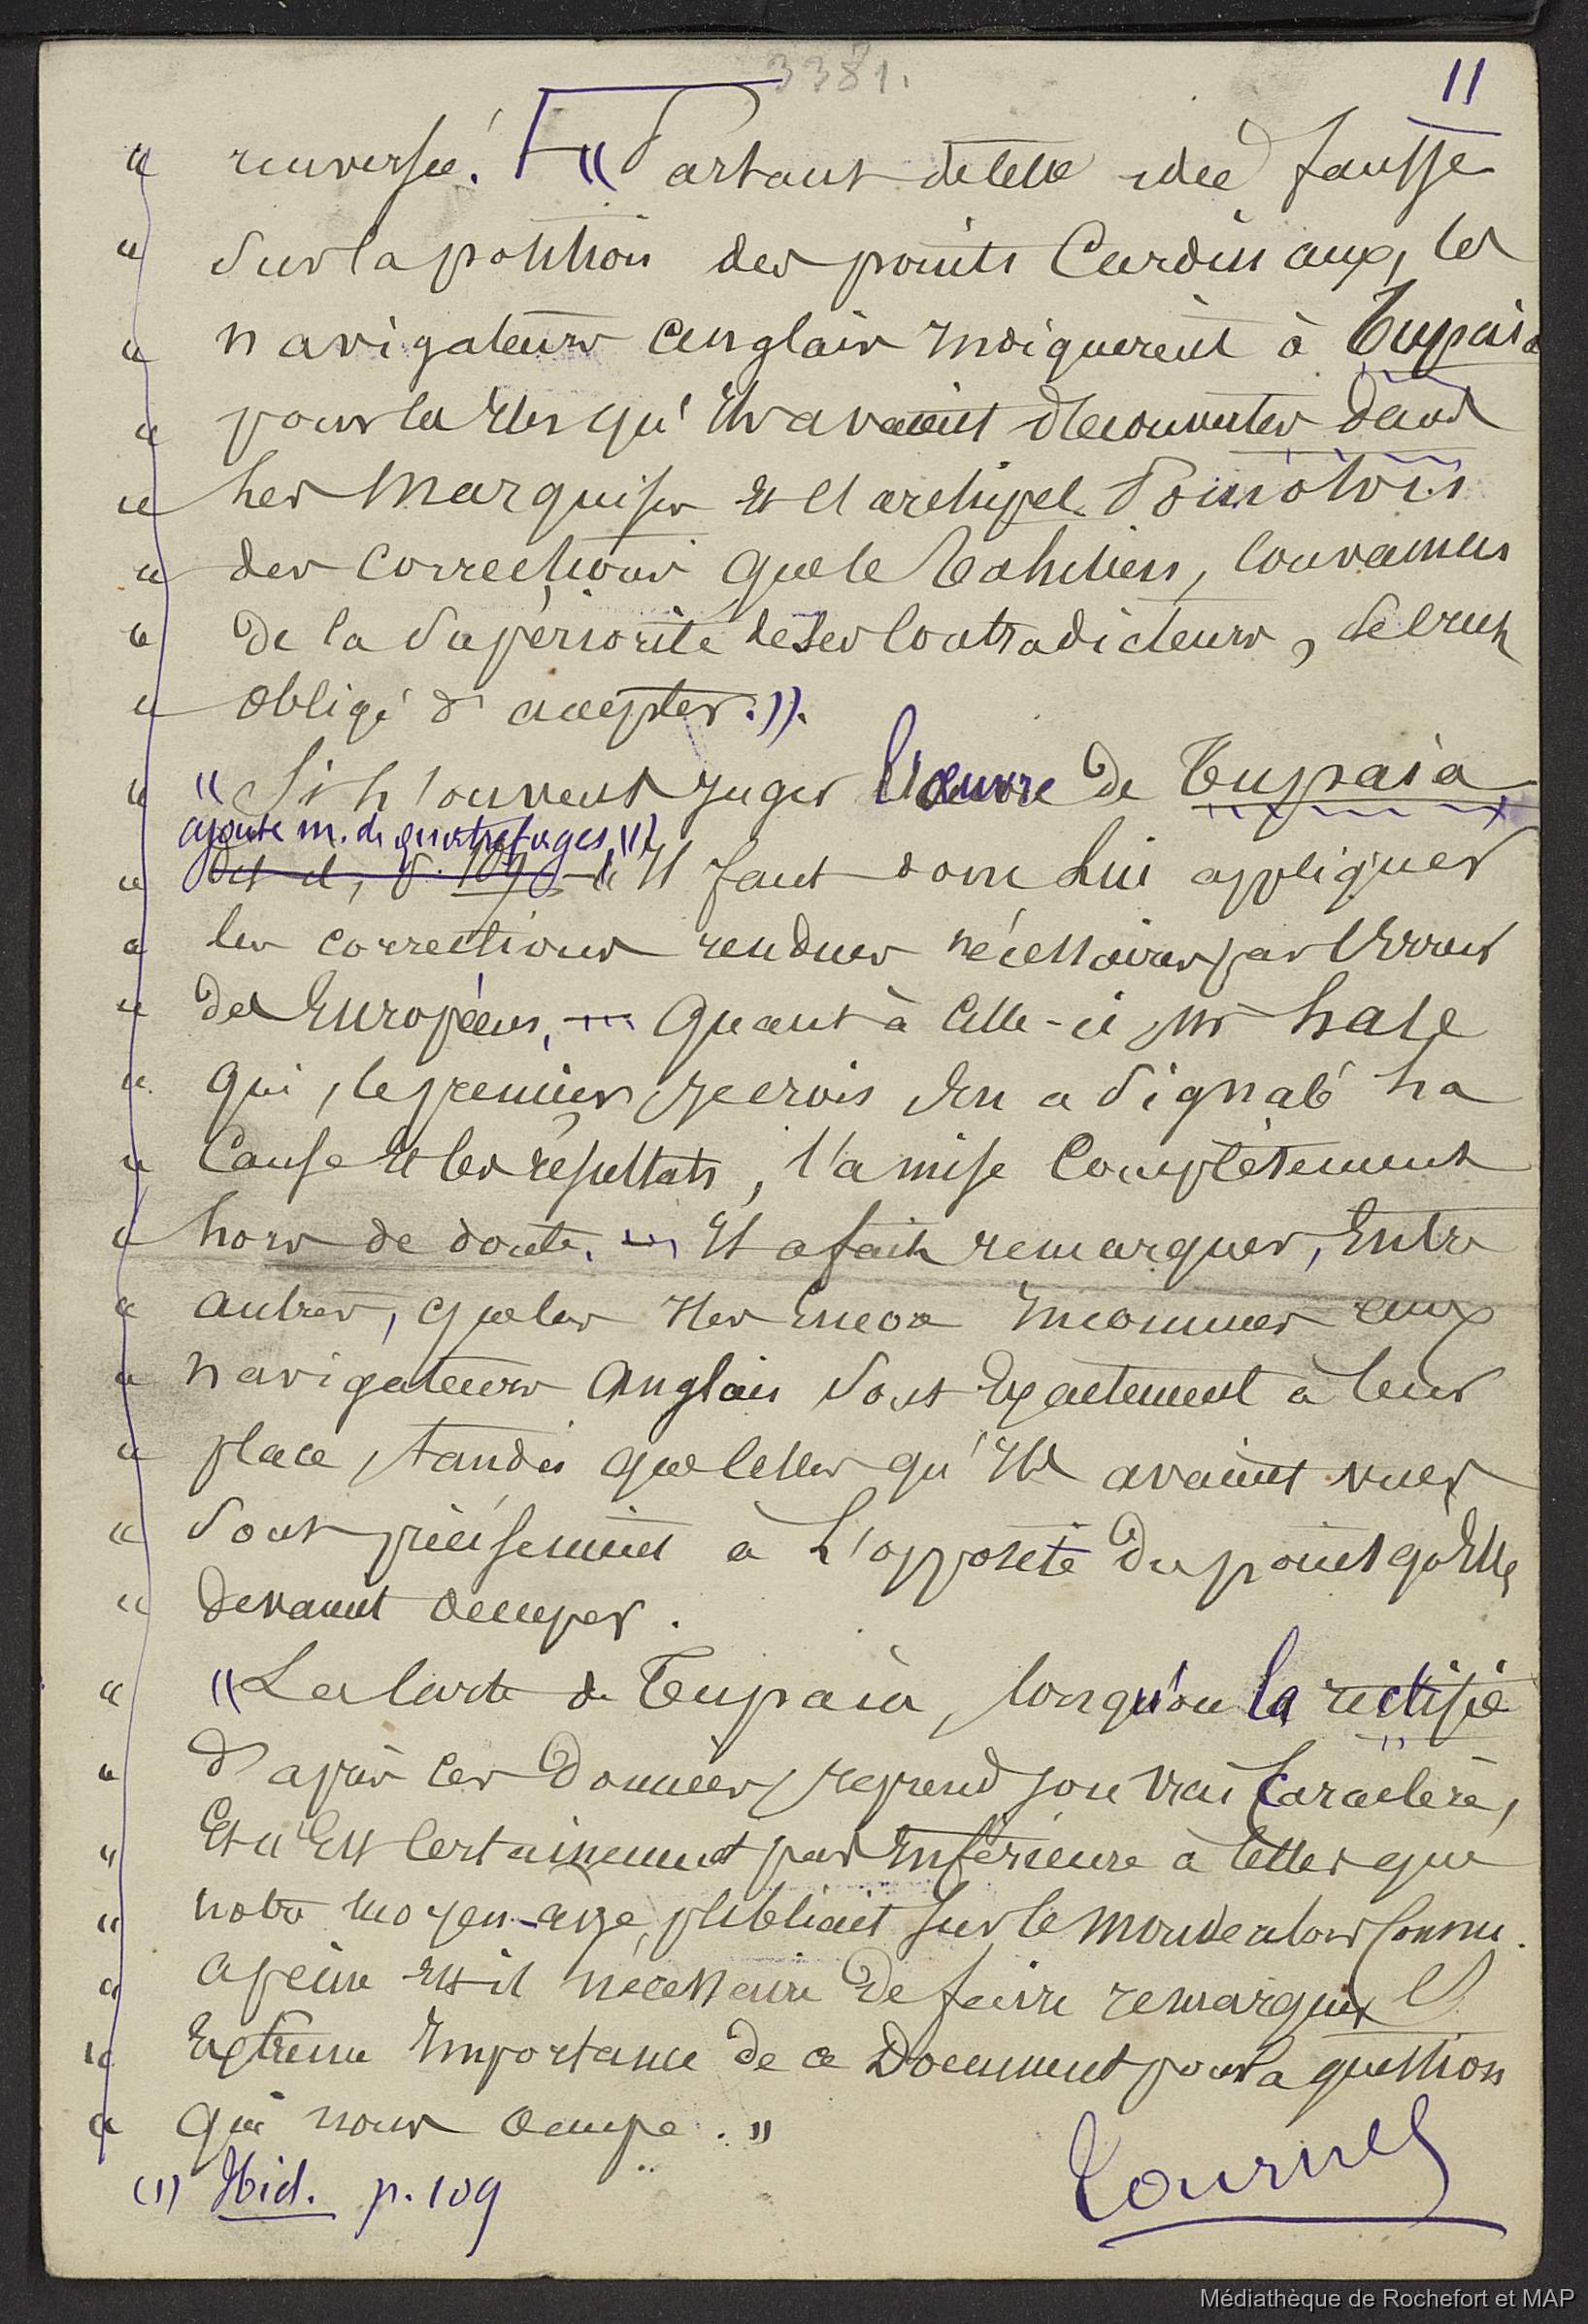 3381.
11
" renversée. " Partant de cette idée fausse
" sur la position des points Cardinaux, les
" navigateurs anglais indiquèrent à Tupaia
" pour les Iles qu'ils avaient découvertes dans
" les Marquises et l'archipel Pomotou
" des corrections que le Tahitien, convaincu
" de la supériorité de ses Contradicteurs, se crut
" obligé d'accepter. ".
" " Si l'on veut juger l'œuvre de Tupaia
ajoute m. de quatrefages, (1)
" dit-il, p. 109 - " il faut donc lui appliquer
" les corrections rendues nécessaires par l'erreur
" des Européens, — Quant à celle-ci, Mr hale
" qui, le premier, je crois, en a signalé la
" Cause et les résultats, l'a mise Complètement
" hors de doute. — Il a fait remarquer, Entre
" autres, que les Iles Encore inconnues aux
" navigateurs Anglais sont Exactement à leur
" place, tandis que celles qu'ils avaient vues
" sont précisément à l'opposite du point qu'Elles
" devaient occuper.
" " La Carte de Tupaia, lorsqu'on la rectifie
" d'après ces données, reprend son vrai Caractère,
" Et n'Est Certainement pas inférieure à celles que
" notre moyen-age publiait sur le monde alors Connu.
" apeine est-il nécessaire de faire remarquer l'
" Extrême importance de ce Document pour la question
" qui nous occupe. "
(1) Ibid. p. 109
Tournez
Médiathèque de Rochefort et MAP